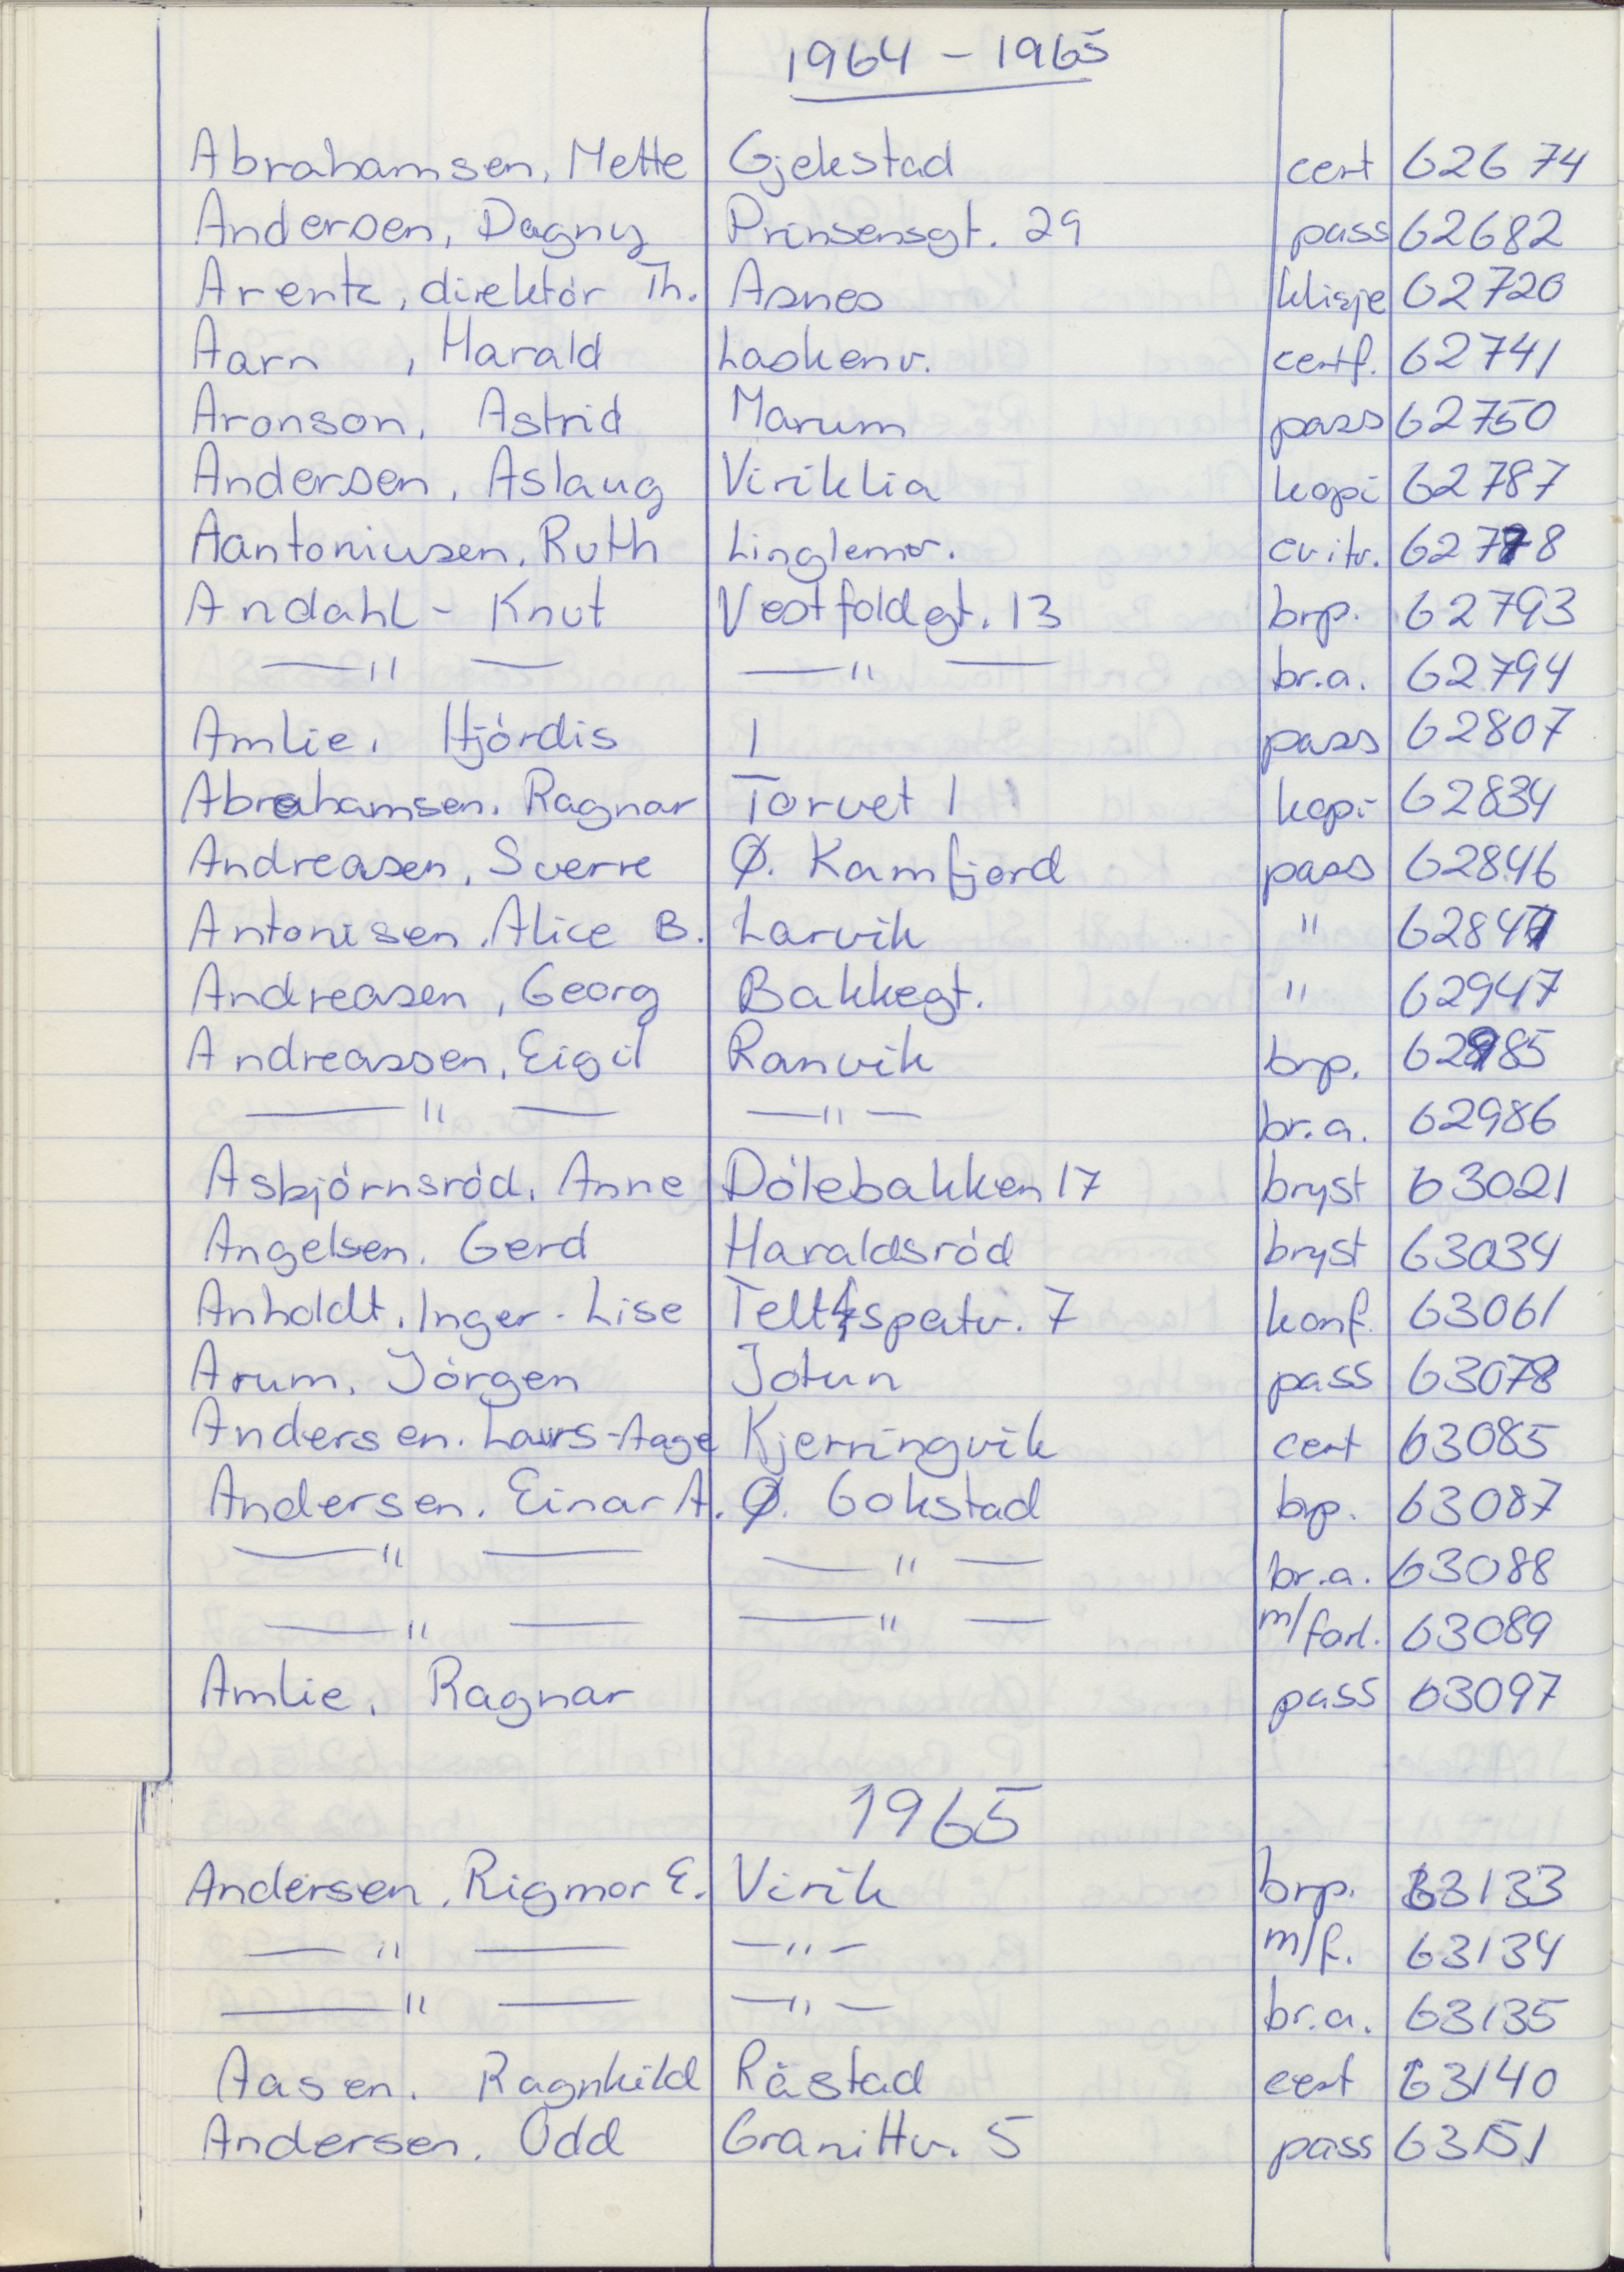 1964 - 1965
Abrahamsen, Mette Gjekstad cert 62674
Andersen, Dagny Prinsensgt. 29 pass 62682
Arentz, direktör Th. Asnes klisje 62720
Aarn , Harald Laskenv. certf. 62741
Aronson, Astrid Marum pass 62750
Andersen, Aslaug Viriklia kopi 62787
Aantoniusen, Ruth cvitv. 62778
Andahl - Knut Vestfoldgt. 13 brp. 62793
—"— —"— br.a. 62794
Amlie, Hjördis 1 pass 62807
Abrahamsen, Ragnar Torvet 1 kopi 62834
Andreasen, Sverre Ø. Kamfjord pass 62846
Antonisen, Alice B. Larvik " 62847
Andreasen, Georg Bakkegt. " 62947
Andreassen, Eigil Ranvik brp. 62985
—"— —"— br.a. 62986
Asbjörnsröd, Anne Dölebakken 17 bryst 63021
Angelsen, Gerd Haraldsröd bryst 63034
Anholdt, Inger-Lise Teltspatv. 7 konf. 63061
Arum, Jörgen Jotun pass 63078
Andersen, Laurs-Aage Kjerringvik cert 63085
Andersen, Einar A. Ø. Gokstad brp. 63087
—"— —"— br.a. 63088
—"— —"— m/farl. 63089
Amlie, Ragnar pass 63097
1965
Andersen, Rigmor E. Virik brp. 63133
—"— —"— m/f. 63134
—"— —"— br.a. 63135
Aasen, Ragnhild Råstad cert 63140
Andersen, Odd Granittv. 5 pass 63151